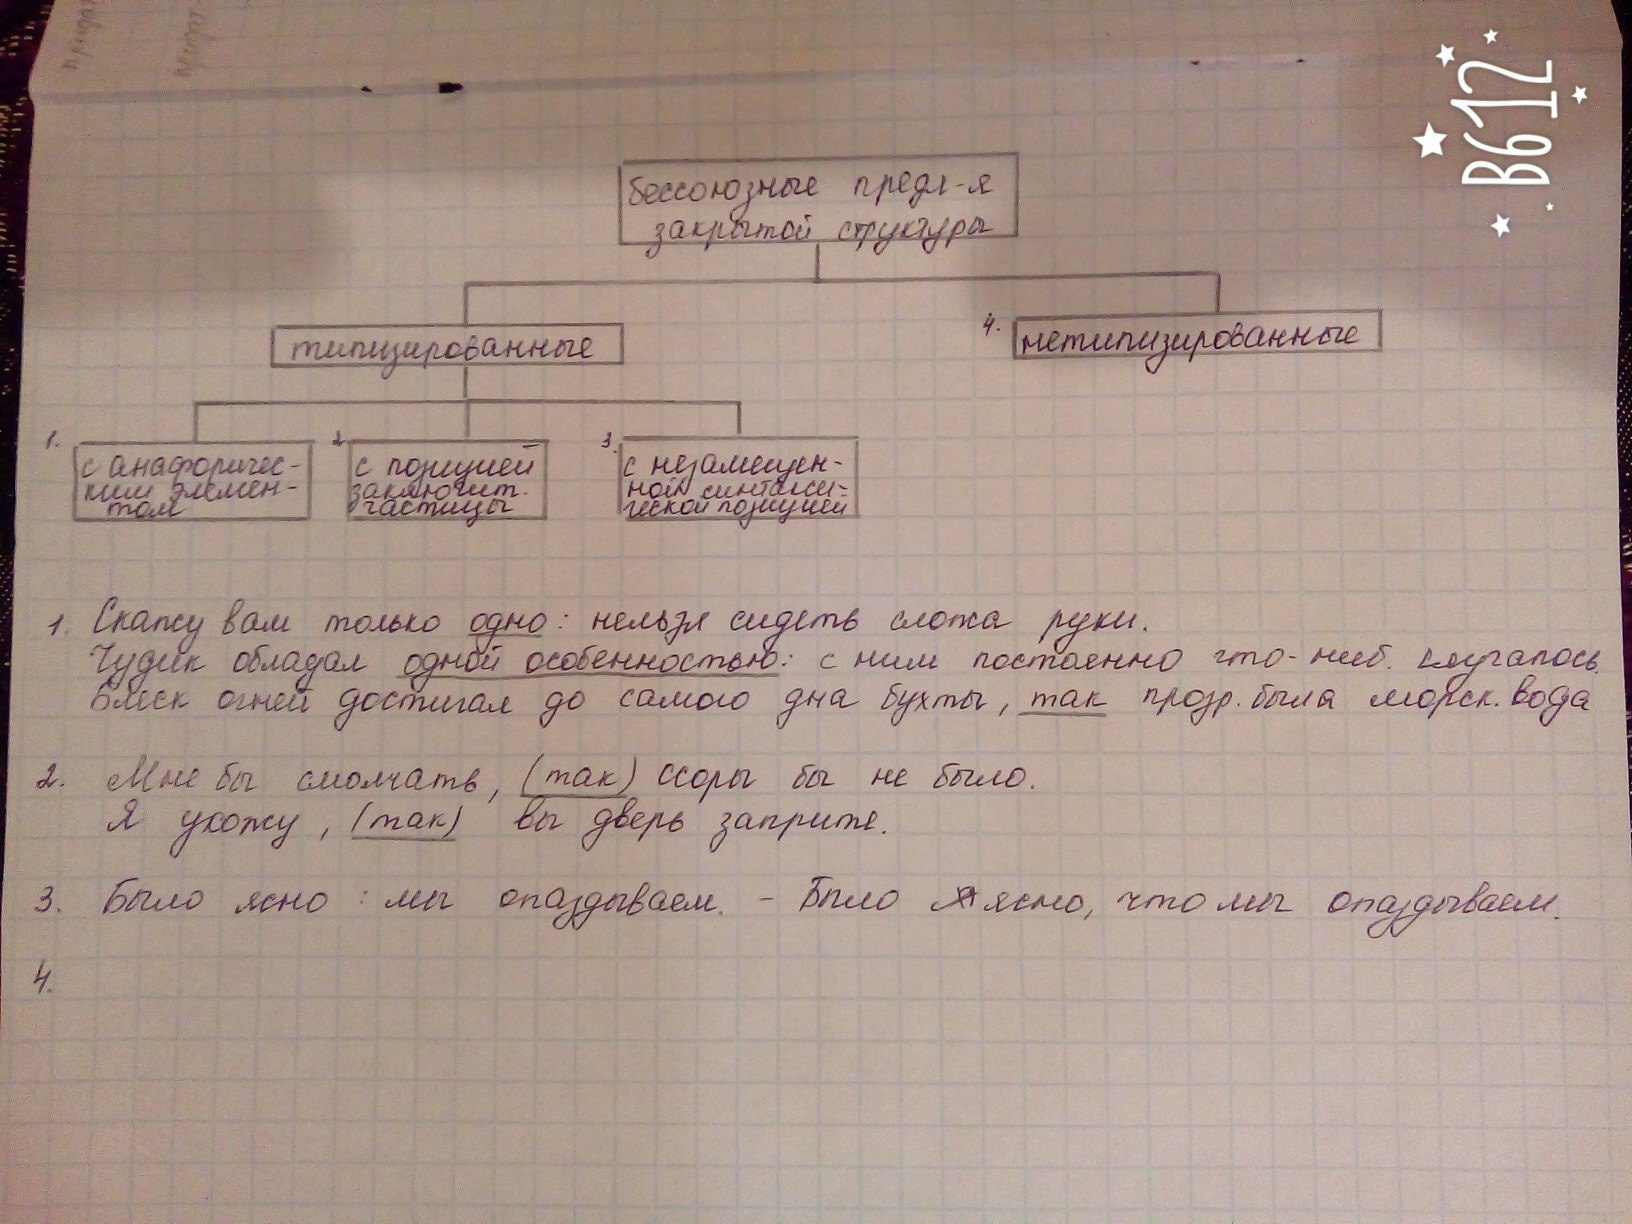 B612
бессоюзные предл-я
закрытой структуры
типизированные
4. нетипизированные
1. с анафоричес-
ким элемен-
том
2. с позицией
заключит.
частицы
3. с незамещен-
ной синтакси-
ческой позицией
1. Скажу вам только одно: нельзя сидеть сложа руки.
Чудик обладал одной особенностью: с ним постоянно что-ниб. случалось.
Блеск огней достигал до самого дна бухты, так прозр. была морск. вода
2. Мне бы смолчать, (так) ссоры бы не было.
Я ухожу, (так) вы дверь заприте.
3. Было ясно: мы опаздываем. - Было ясно, что мы опаздываем.
4.